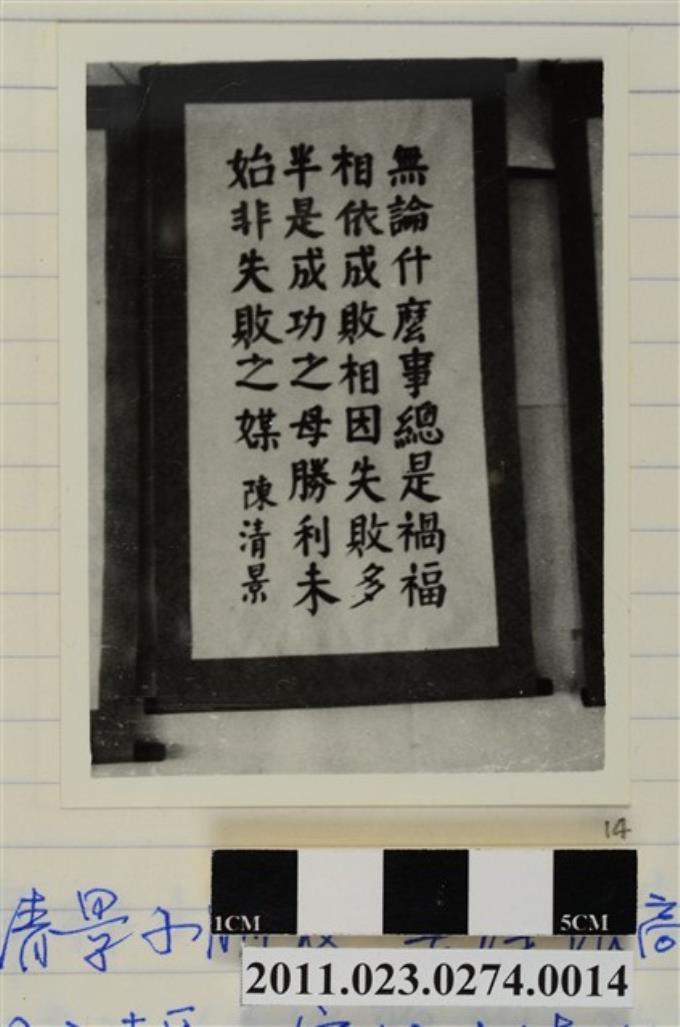 無論什麼事總是禍福
相依成敗相因失敗多
半是成功之母勝利未
始非失敗之媒
陳清景
14
1CM 5CM
2011.023.0274.0014
清景